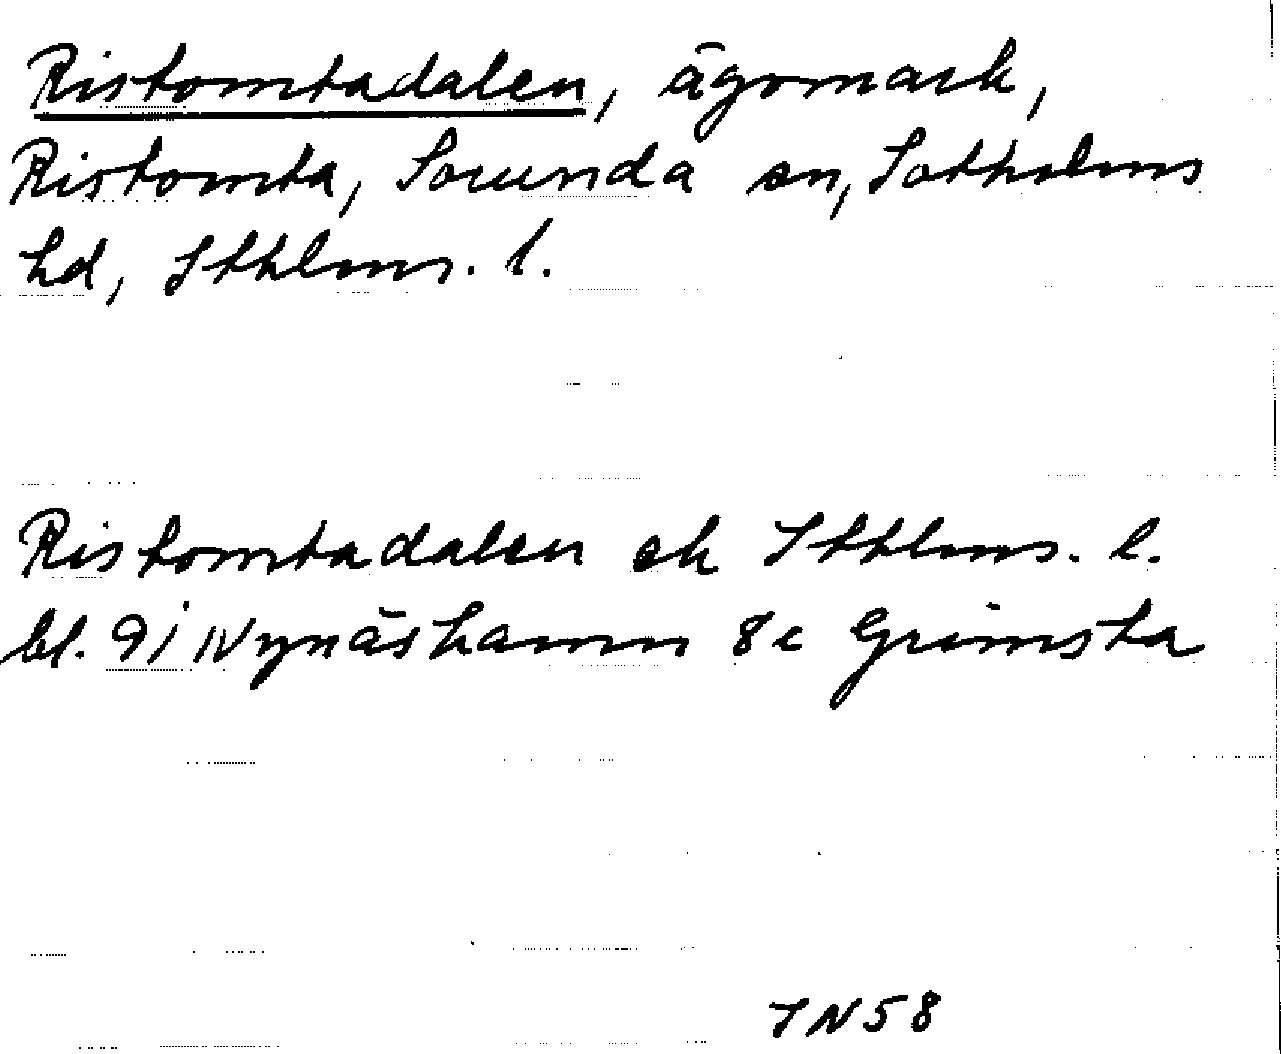 Ristomtadalen, ägomark,
Ristomta, Sorunda sn, Sotholms
hd, Sthlms. l.
Ristomtadalen ek Sthlms. l.
bl. 9i Nynäshamn 8c Grimsta
JN58